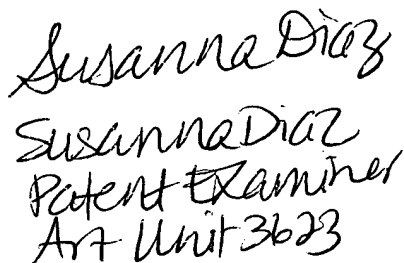 Susanna Diaz
Susanna Diaz
Patent Examiner
Art Unit 3623